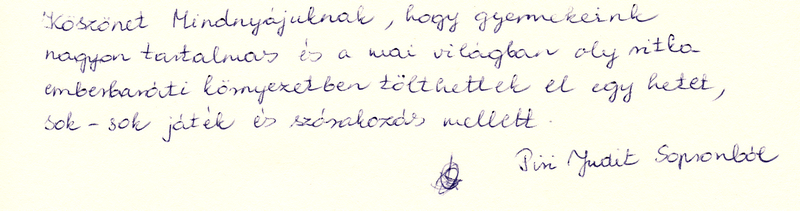 Köszönet Mindnyájuknak, hogy gyermekeink
nagyon tartalmas és a mai világban oly ritka
emberbaráti környezetben tölthettek el egy hetet,
sok-sok játék és szórakozás mellett.
Piri Judit Sopronból